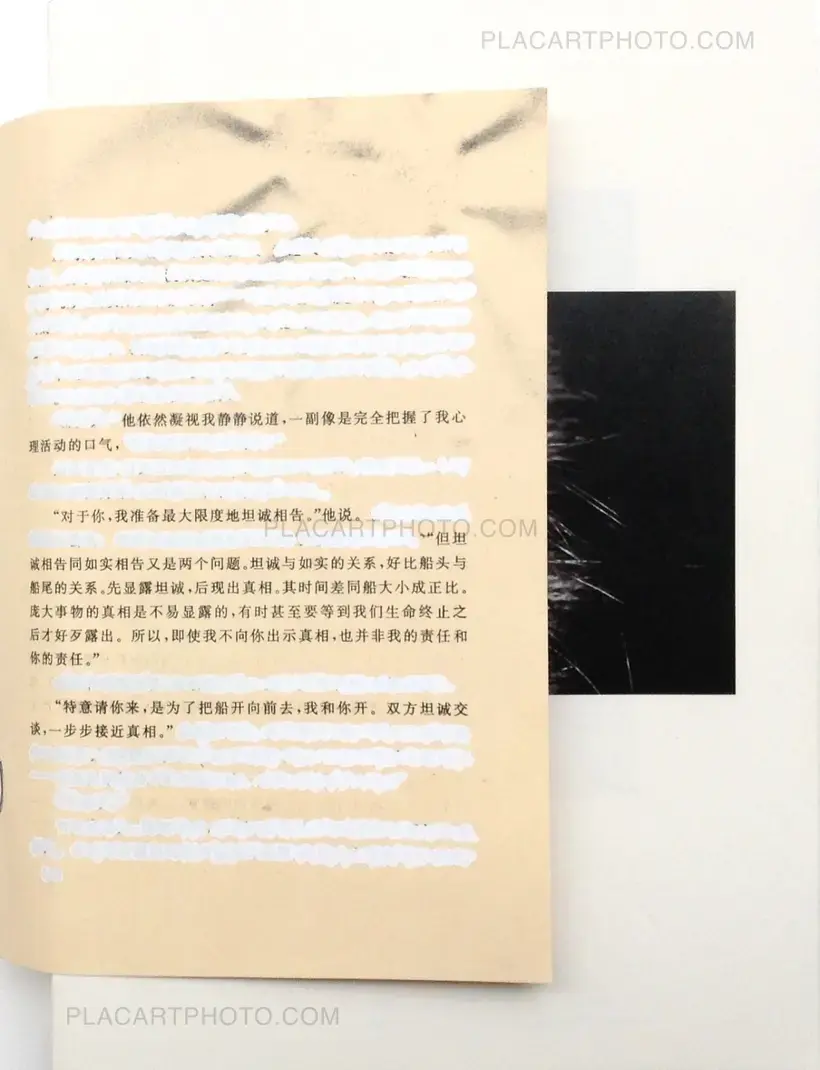 PLACARTPHOTO.COM
他依然凝视我静静说道,一副像是完全把握了我心
理活动的口气,
“对于你,我准备最大限度地坦诚相告。”他说。
PLACARTPHOTO.COM
“但坦
诚相告同如实相告又是两个问题。坦诚与如实的关系,好比船头与
船尾的关系。先显露坦诚,后现出真相。其时间差同船大小成正比。
庞大事物的真相是不易显露的,有时甚至要等到我们生命终止之
后才好歹露出。所以,即使我不向你出示真相,也并非我的责任和
你的责任。”
“特意请你来,是为了把船开向前去,我和你开。双方坦诚交
谈,一步步接近真相。”
PLACARTPHOTO.COM